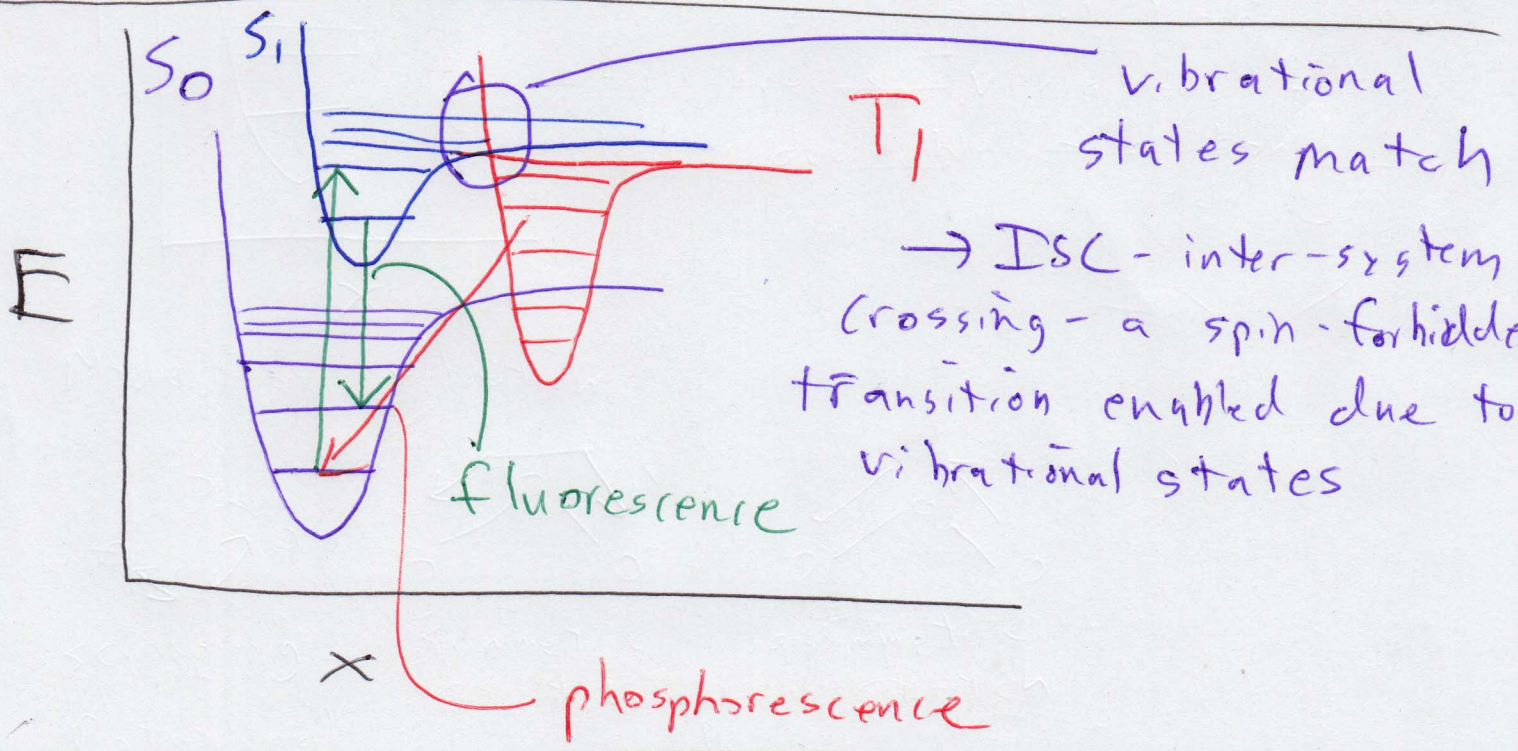 S0
S1
E
T1
vibrational
states match
→ ISC - inter-system
crossing - a spin-forbidde
transition enabled due to
vibrational states
fluorescence
x
phosphorescence